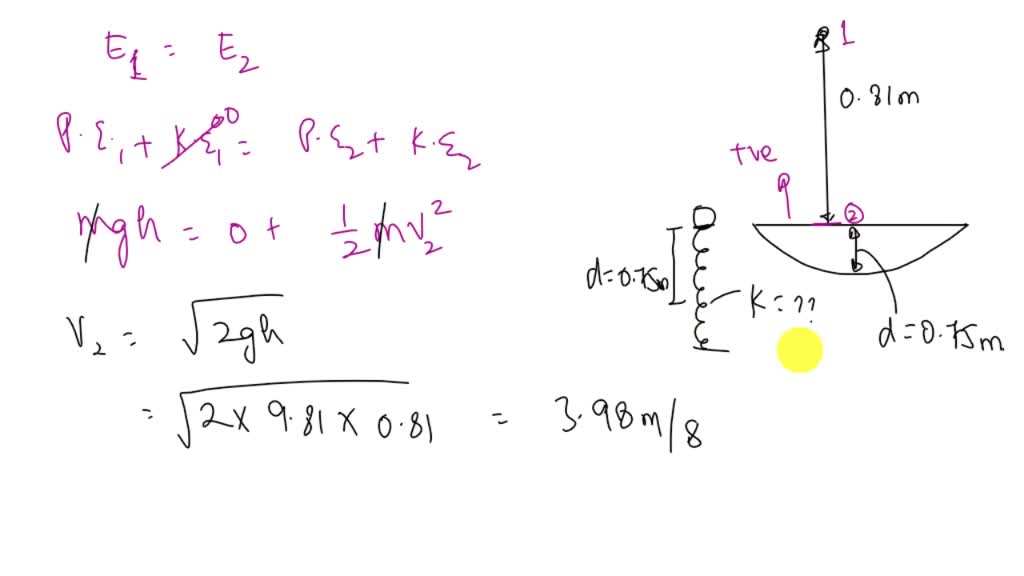 E1 = E2
P.E1 + K.E1 0 = P.E2 + K.E2
mgh = 0 + 1/2 mv2^2
V2 = √2gh
= √2 x 9.81 x 0.81 = 3.98 m/8
1
0.81m
+ve
2
d=0.75m
K=??
d=0.75m